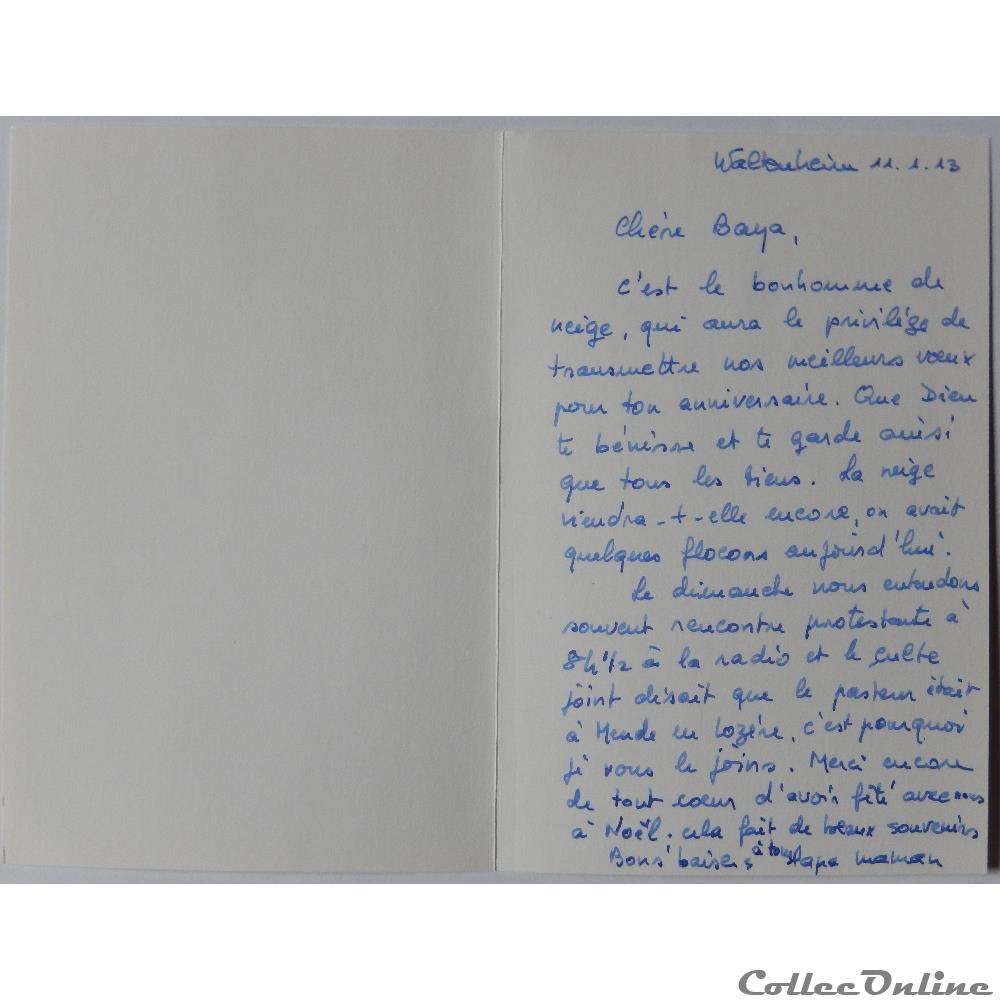 Waltenheim 11.1.13
Chère Baya,
C'est le bonhomme de
neige, qui aura le privilège de
transmettre nos meilleurs vœux
pour ton anniversaire. Que Dieu
te bénisse et te garde ainsi
que tous les tiens. La neige
viendra-t-elle encore, on avait
quelques flocons aujourd'hui.
Le dimanche nous entendons
souvent rencontre protestante à
8h 1/2 à la radio et le culte
joint disait que le pasteur était
à Mende en Lozère, c'est pourquoi
je vous le joins. Merci encore
de tout cœur d'avoir fêté avec nous
à Noël. cela fait de beaux souvenirs
Bons baisers à tous Papa maman
CollecOnline